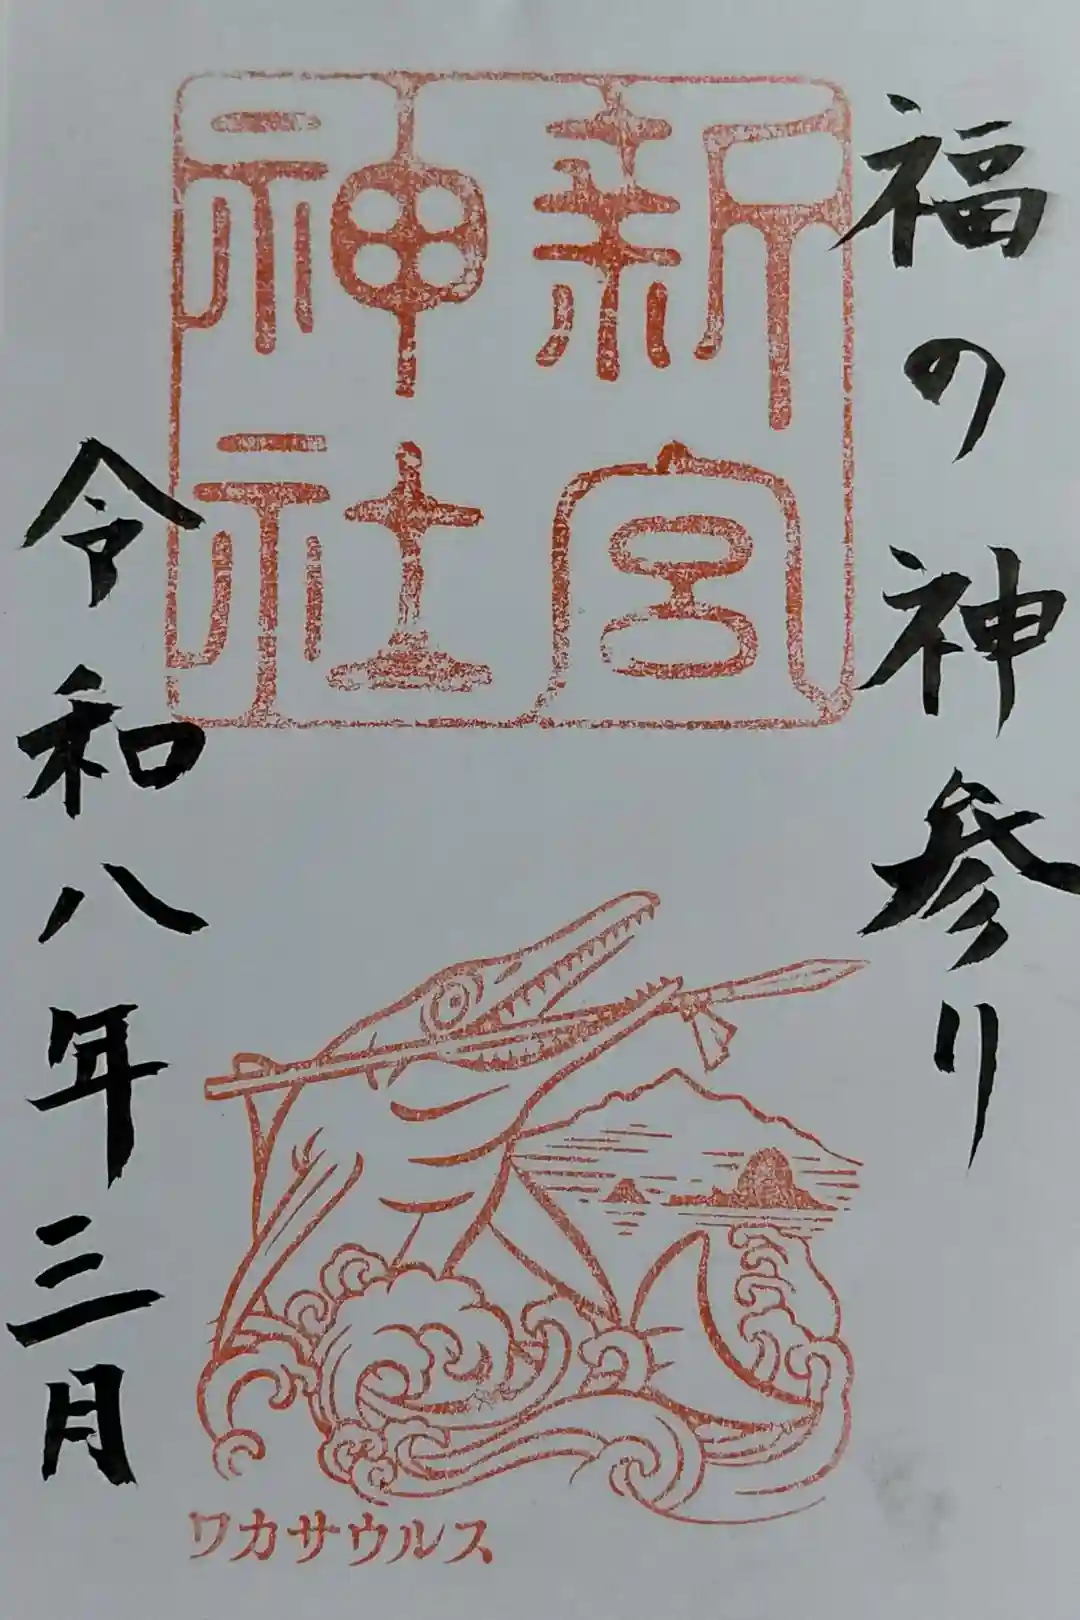 福の神参り
新宮
神社
令和八年三月
ワカサウルス